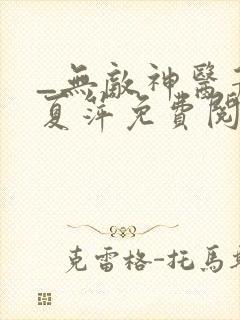 _無敵神醫
夏萍免費閱
克雷格-托馬斯